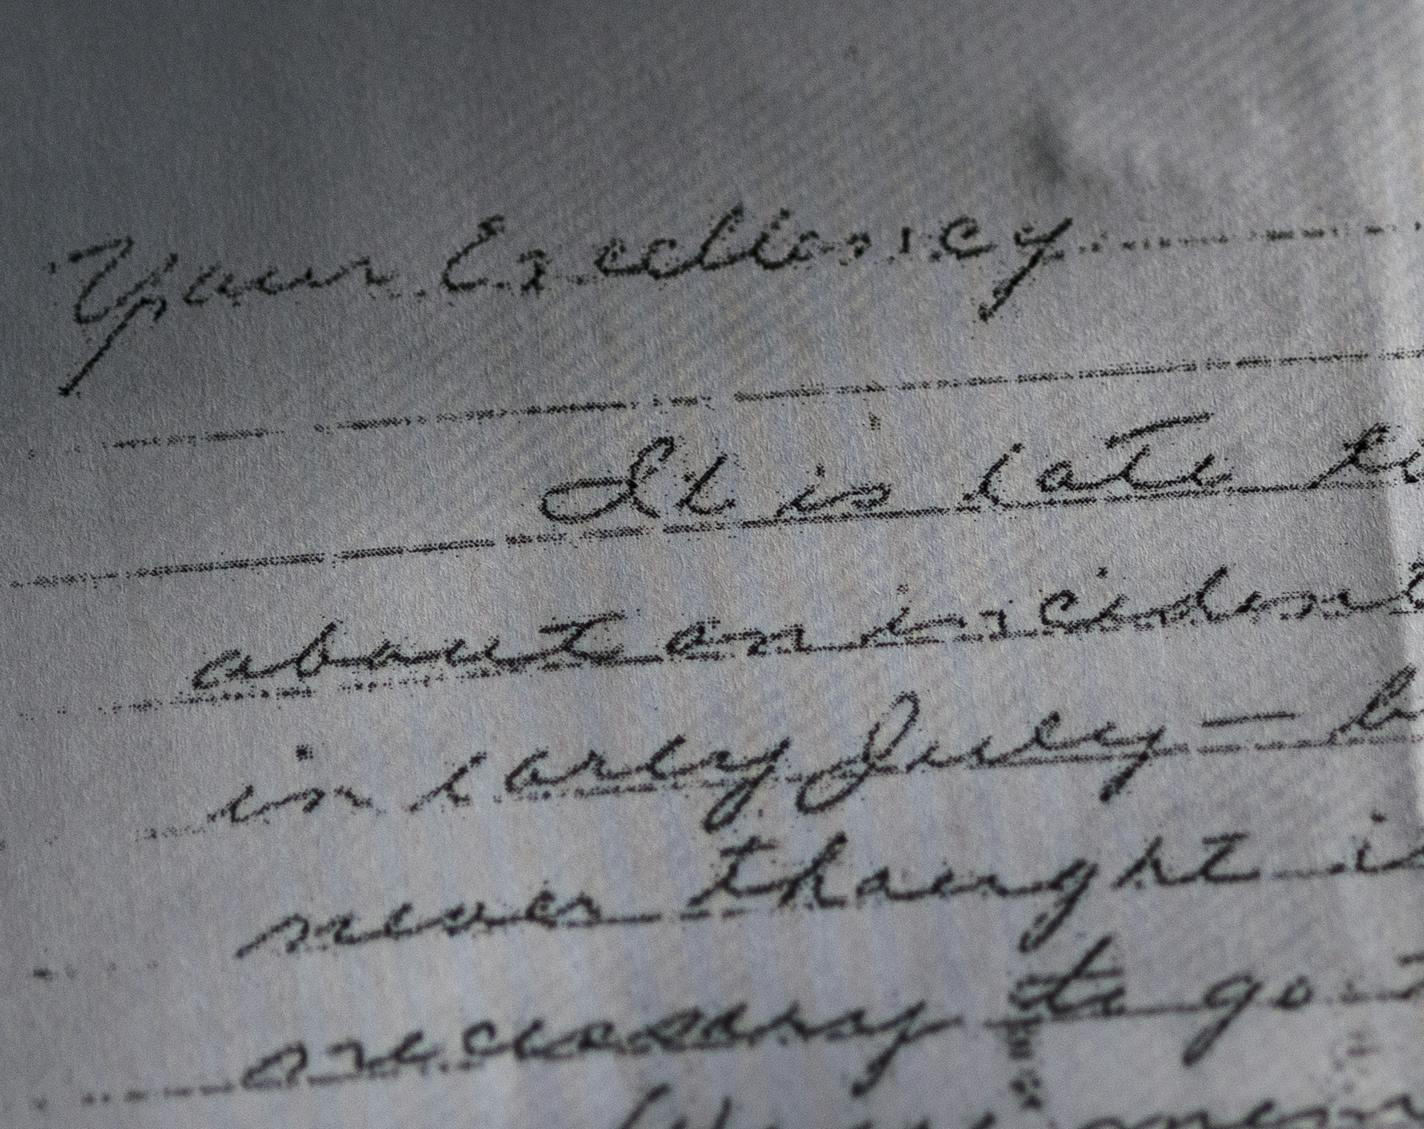 Your Excellency
It is late
about an incident
in early July —
never thought
necessary to go